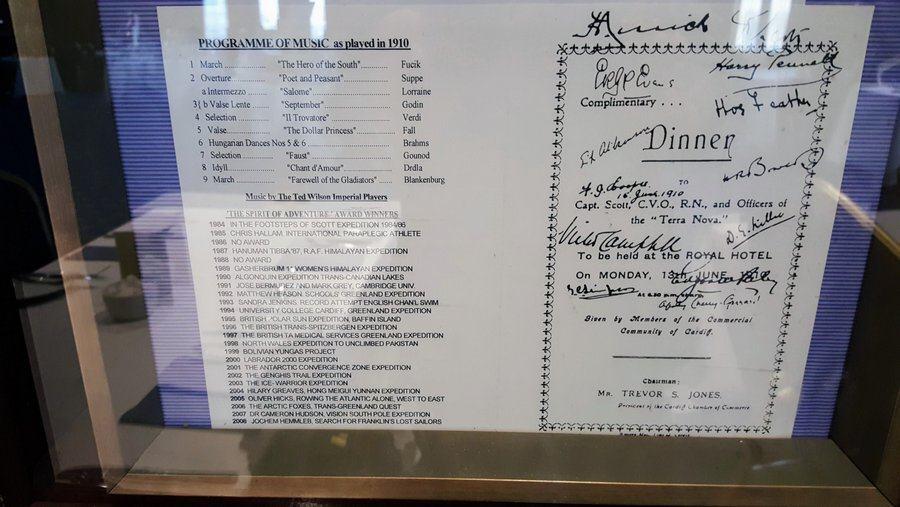 PROGRAMME OF MUSIC as played in 1910
1 March .................. "The Hero of the South".......... Fucik
2 Overture............... "Poet and Peasant"............... Suppe
a Intermezzo ....... "Salome"............................ Lorraine
3{ b Valse Lente ....... "September"....................... Godin
4 Selection ............. "Il Trovatore"..................... Verdi
5 Valse................... "The Dollar Princess".......... Fall
6 Hungarian Dances Nos 5 & 6 ............................... Brahms
7 Selection ............. "Faust"............................. Gounod
8 Idyll.................... "Chant d'Amour"................. Drdla
9 March ................. "Farewell of the Gladiators" .. Blankenburg
Music by The Ted Wilson Imperial Players
'THE SPIRIT OF ADVENTURE' AWARD WINNERS
1984 IN THE FOOTSTEPS OF SCOTT EXPEDITION 1984/86
1985 CHRIS HALLAM, INTERNATIONAL PARAPLEGIC ATHLETE
1986 NO AWARD
1987 HANUMAN TIBBA '87, R.A.F. HIMALAYAN EXPEDITION
1988 NO AWARD
1989 GASHERBRUM WOMEN'S HIMALAYAN EXPEDITION
1990 ALGONQUIN EXPEDITION TRANS-CANADIAN LAKES
1991 JOSE BERMUDEZ AND MARK GREY, CAMBRIDGE UNIV.
1992 MATTHEW HEASON, SCHOOLS' GREENLAND EXPEDITION
1993 SANDRA JENKINS, RECORD ATTEMPT ENGLISH CHANL SWIM
1994 UNIVERSITY COLLEGE CARDIFF, GREENLAND EXPEDITION
1995 BRITISH POLAR SUN EXPEDITION, BAFFIN ISLAND
1996 THE BRITISH TRANS-SPITZBERGEN EXPEDITION
1997 THE BRITISH TA MEDICAL SERVICES GREENLAND EXPEDITION
1998 NORTH WALES EXPEDITION TO UNCLIMBED PAKISTAN
1999 BOLIVIAN YUNGAS PROJECT
2000 LABRADOR 2000 EXPEDITION
2001 THE ANTARCTIC CONVERGENCE ZONE EXPEDITION
2002 THE GENGHIS TRAIL EXPEDITION
2003 THE ICE-WARRIOR EXPEDITION
2004 HILARY GREAVES, HONG MEIGUI YUNNAN EXPEDITION
2005 OLIVER HICKS, ROWING THE ATLANTIC ALONE, WEST TO EAST
2006 THE ARCTIC FOXES, TRANS-GREENLAND QUEST
2007 DR CAMERON HUDSON, VISION SOUTH POLE EXPEDITION
2008 JOCHEM HEMMLEB, SEARCH FOR FRANKLIN'S LOST SAILORS
Harry Pennell
Evans
Complimentary . . .
Dinner
TO
15 June 1910
Capt. Scott, C.V.O., R.N., and Officers of
the "Terra Nova."
Victor Campbell
D. G. Lillie
To be held at the ROYAL HOTEL
On MONDAY, 13th JUNE
Apsley Cherry-Garrard
Given by Members of the Commercial
Community of Cardiff.
Chairman:
Mr. TREVOR S. JONES.
President of the Cardiff Chamber of Commerce